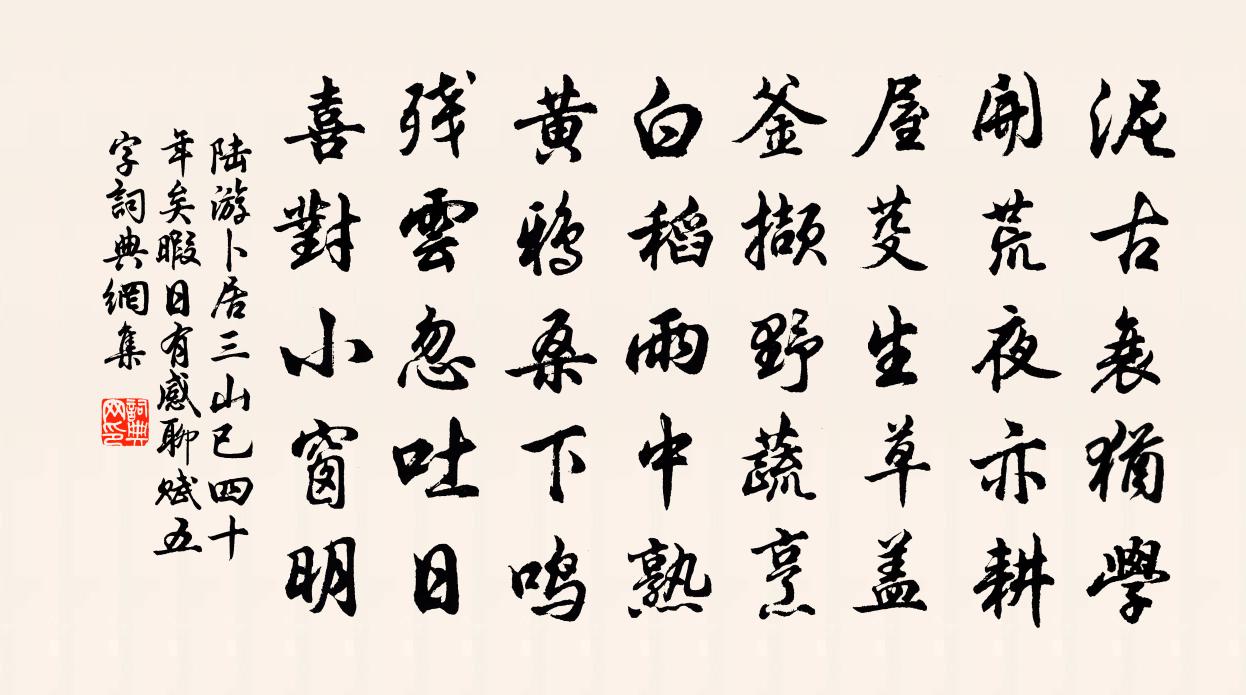 泥古衰猶學
開荒夜亦耕
屋茭生草蓋
釜擷野蔬烹
白稻雨中熟
黄鴉桑下鳴
残雲忽吐日
喜對小窗明
陆游卜居三山已四十
年矣暇日有感聊赋五
字詞典網集
詞典网印